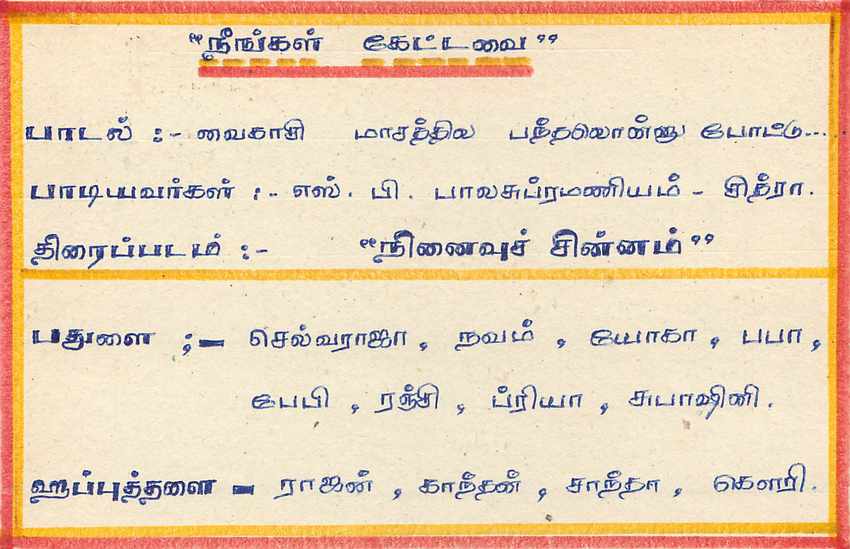 “நீங்கள் கேட்டவை”
பாடல் :- வைகாசி மாசத்தில பந்தலொன்னு போட்டு....
பாடியவர்கள் :- எஸ். பி. பாலசுப்ரமணியம் - சித்ரா.
திரைப்படம் :- “நினைவுச் சின்னம்”
பதுளை ;- செல்வராஜா, நவம், யோகா, பபா,
பேபி, ரஞ்சி, ப்ரியா, சுபாஷினி.
ஹப்புத்தளை - ராஜன், காந்தன், சாந்தா, கௌரி.